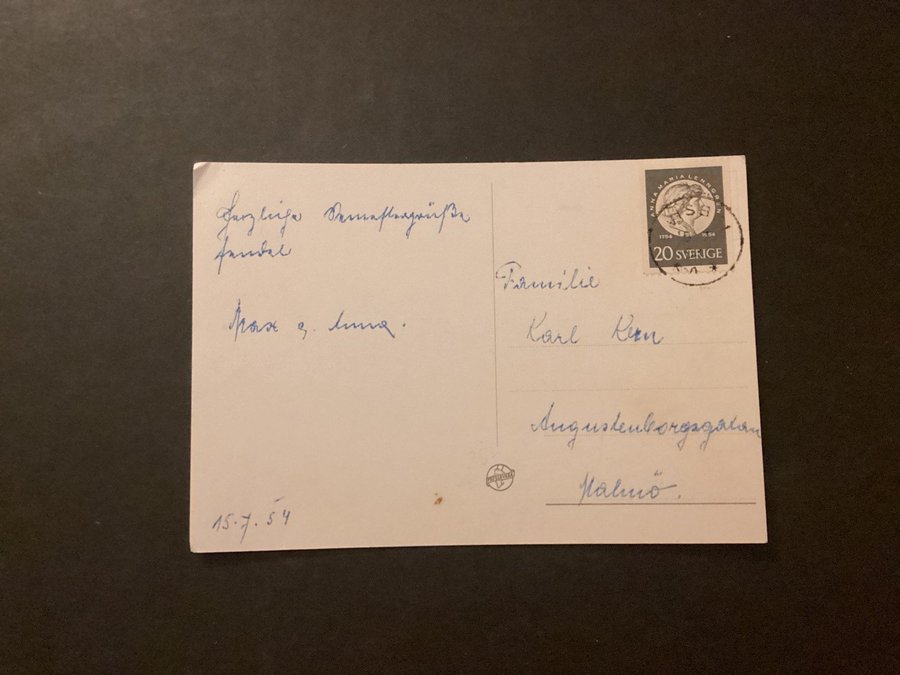 Herzliche Semestergrüße
sendet
Max u. Anna.
15.7.54
ANNA MARIA LENNGREN
1754 1954
20 SVERIGE
Familie
Karl Kern
Augustenborgsgatan
Malmö.